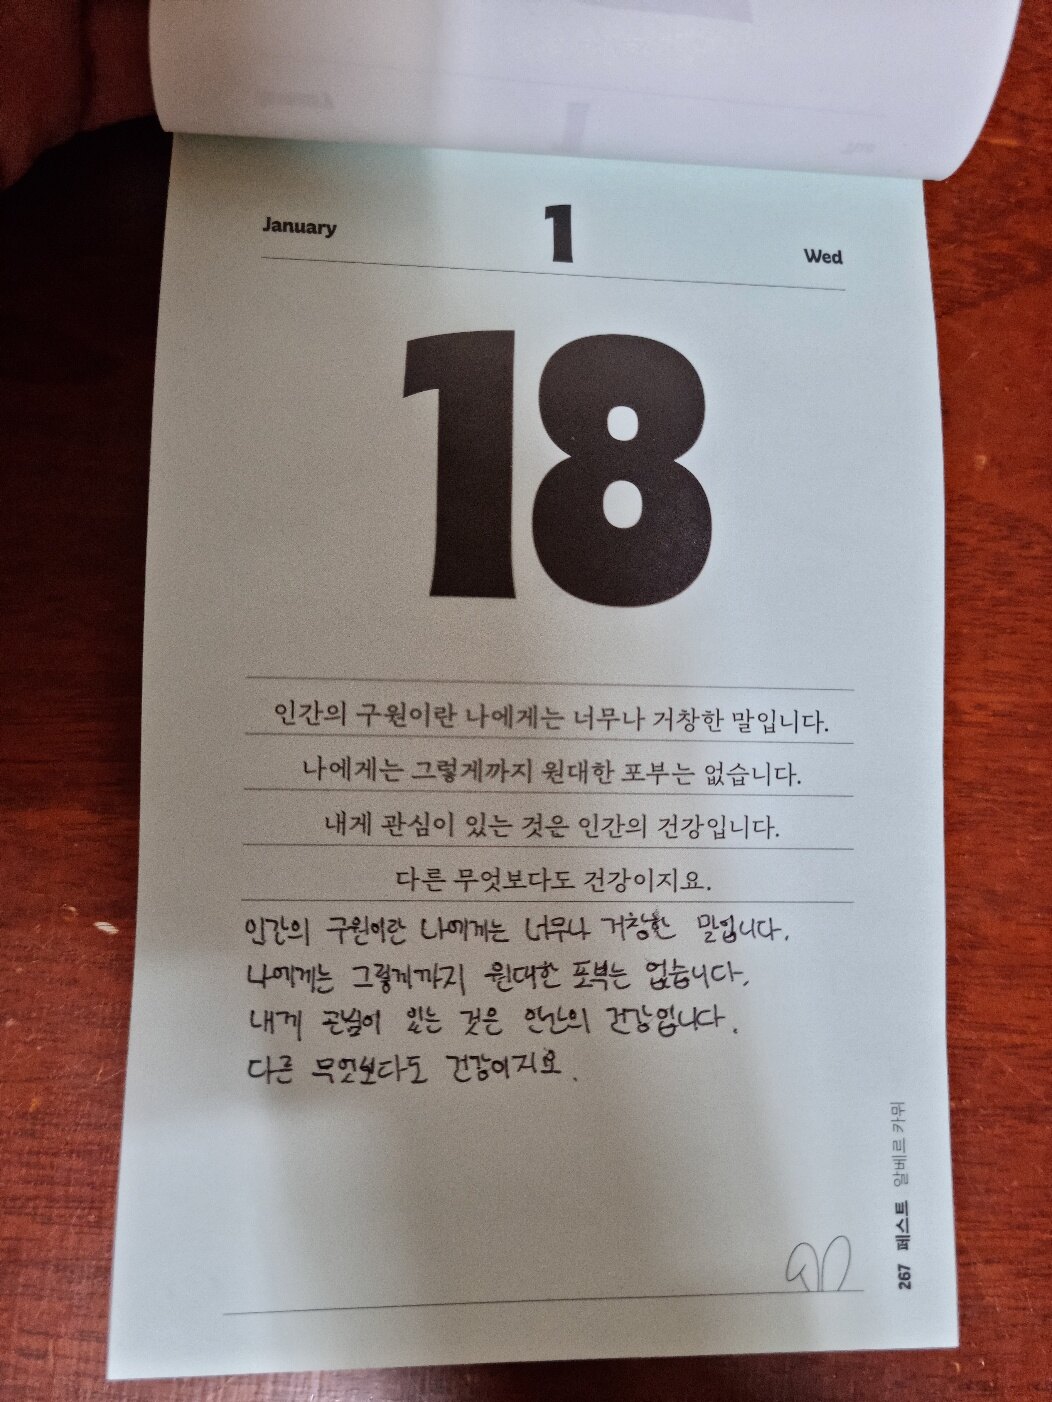 January 1 Wed
18
인간의 구원이란 나에게는 너무나 거창한 말입니다.
나에게는 그렇게까지 원대한 포부는 없습니다.
내게 관심이 있는 것은 인간의 건강입니다.
다른 무엇보다도 건강이지요.
인간의 구원이란 나에게는 너무나 거창한 말입니다.
나에게는 그렇게까지 원대한 포부는 없습니다.
내게 관심이 있는 것은 인간의 건강입니다.
다른 무엇보다도 건강이지요.
267 페스트 알베르 카뮈